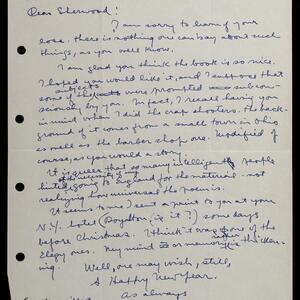 Dear Sherwood:
I am sorry to learn of your
loss. there is nothing one can say about such
things, as you well know.
I am glad you think the book is so nice.
I hoped you would like it, and I suppose that
some of the subjects were prompted subcon-
sciously by you. In fact, I recall having you
in mind when I did the crap shooters. The back-
ground of it comes from a small town in Ohio
as well as the barber shop one. Modified of
course, as you would a story.
It is queer that so many intelligent people
going to England for the material - not
realizing how universal the poem is.
It seems to me I sent a print to you at your
N.Y. hotel (Royalton, is it?) some days
before Christmas. I think it was one of the
Elegy ones. My mind or manuscript is thicken-
ing.
Well, one may wish, still,
A Happy New Year.
As always